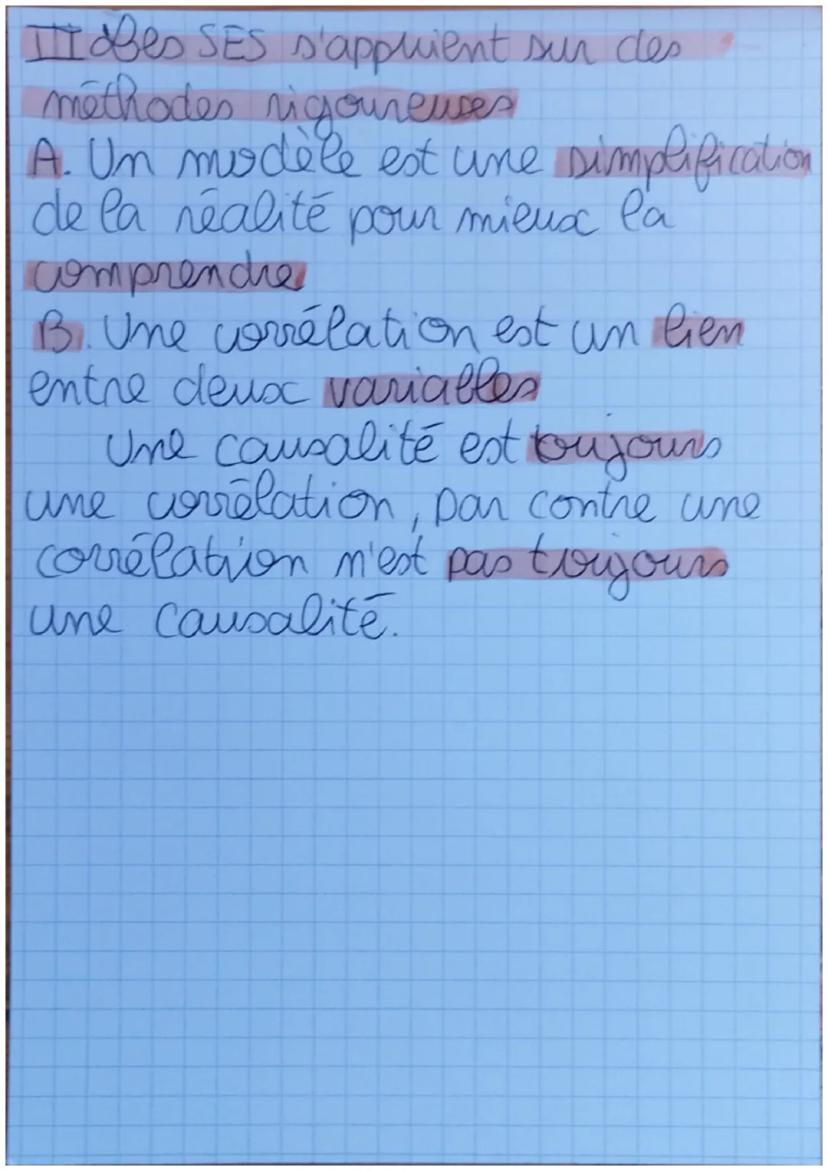 II Les SES s'appuient sur des
méthodes rigoureuses
A. Un modèle est une simplification
de la réalité pour mieux la
comprendre
B. Une corrélation est un lien
entre deux variables
Une causalité est toujours
une corrélation, par contre une
corrélation n'est pas toujours
une causalité.